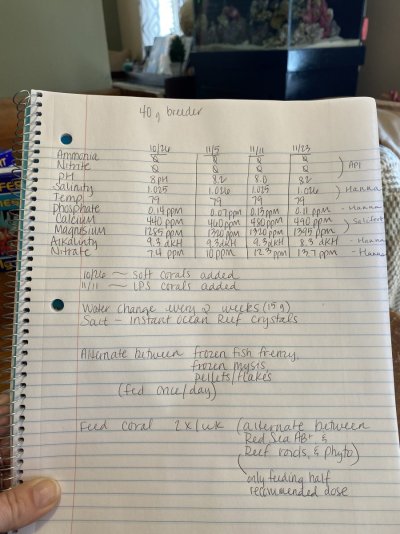 40 g breeder
10/26 11/5 11/11 11/23
Ammonia 0 0 0 0
Nitrite 0 0 0 0 API
pH 8.2 8.0 8.2
Salinity 1.025 1.026 1.025 1.026 Hanna
Temp 79 79 79 79
phosphate 0.14 ppm 0.07 ppm 0.13 ppm 0.11 ppm - Hanna
Calcium 440 ppm 460 ppm 480 ppm 490 ppm Salifert
Magnesium 1285 ppm 1320 ppm 1320 ppm 1345 ppm
Alkalinity 9.3 dKH 9.3 dKH 9.3 dKH 8.3 dKH - Hanna
Nitrate 7.4 ppm 10 ppm 12.3 ppm 13.7 ppm - Hanna
10/26 ~ Soft corals added
11/11 ~ LPS corals added
Water change every 2 weeks (15 g)
Salt - Instant Ocean Reef Crystals
Alternate between frozen fish frenzy,
frozen mysis
pellets/flakes
(fed once/day)
Feed coral 2x/wk (alternate between
Red Sea AB+ &
Reef roids, & Phyto)
only feeding half
recommended dose